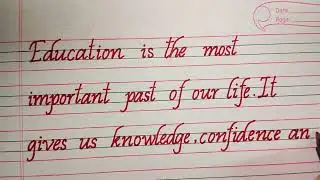 Date
Page
Education is the most
important past of our life. It
gives us knowledge.confidence an